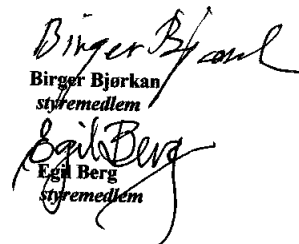 Birger Bjørkan
Birger Bjørkan
styremedlem
Egil Berg
Egil Berg
styremedlem